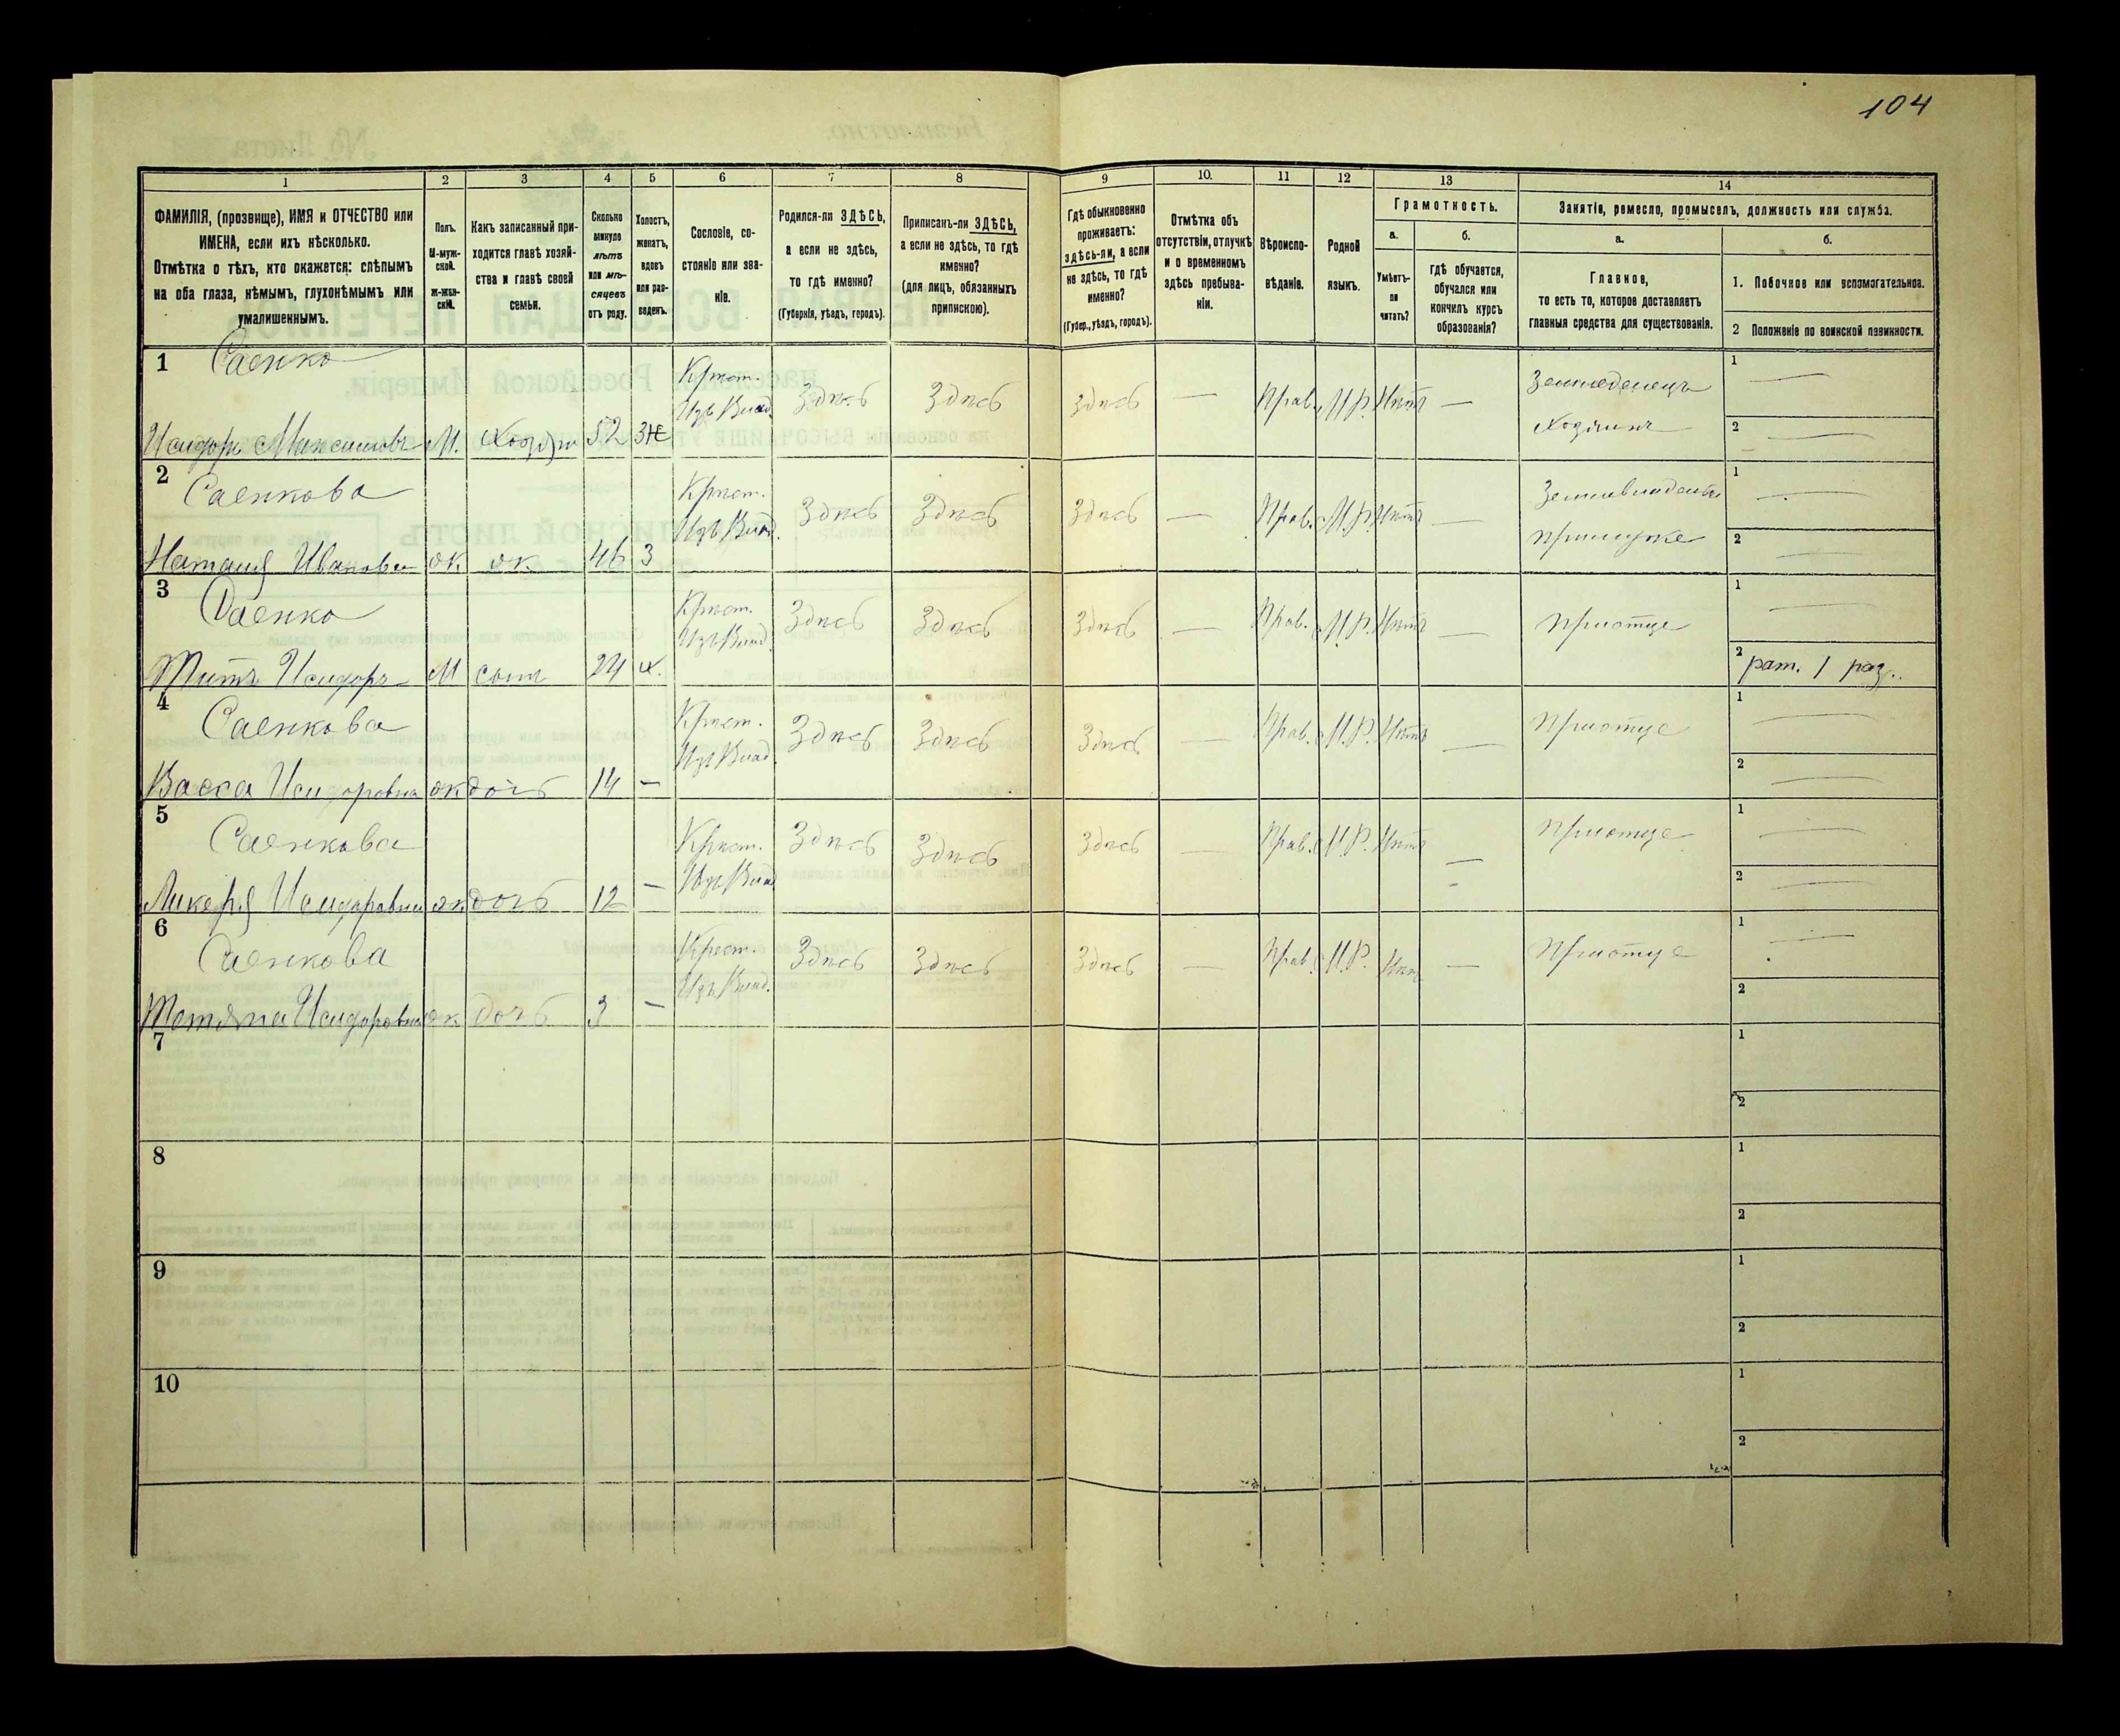 104
1
2
3
4
5
6
7
8
9
10.
11
12
13
14
ФАМИЛІЯ, (прозвище), ИМЯ и ОТЧЕСТВО или
ИМЕНА, если ихъ нѣсколько.
Отмѣтка о тѣхъ, кто окажется: слѣпымъ
на оба глаза, нѣмымъ, глухонѣмымъ или
умалишеннымъ.
Полъ.
М-муж-
ской.
Ж-жен-
скій.
Какъ записанный при-
ходится главѣ хозяй-
ства и главѣ своей
семьи.
Сколько
минуло
лѣтъ
или мѣ-
сяцевъ
отъ роду.
Холостъ,
женатъ,
вдовъ
или раз-
веденъ.
Сословіе, со-
стояніе или зва-
ніе.
Родился-ли ЗДѢСЬ,
а если не здѣсь,
то гдѣ именно?
(Губернія, уѣздъ, городъ).
Приписанъ-ли ЗДѢСЬ,
а если не здѣсь, то гдѣ
именно?
(для лицъ, обязанныхъ
припискою).
Гдѣ обыкновенно
проживаетъ:
здѣсь-ли, а если
не здѣсь, то гдѣ
именно?
(Губер., уѣздъ, городъ).
Отмѣтка объ
отсутствіи, отлучкѣ
и о временномъ
здѣсь пребыва-
ніи.
Вѣроиспо-
вѣданіе.
Родной
языкъ.
Грамотность.
а.
Умѣетъ-
ли
читать?
б.
гдѣ обучается,
обучался или
кончилъ курсъ
образованія?
Занятіе, ремесло, промыселъ, должность или служба.
а.
Главное,
то есть то, которое доставляетъ
главныя средства для существованія.
б.
1. Побочное или вспомогательное.
2 Положеніе по воинской повинности.
1
Саенко
Исидоръ Максимовъ М. Хозяин 52 Ж
Крест.
Изъ Влад.
Здѣсь Здѣсь Здѣсь — Прав. М.Р. Нѣтъ —
Земледелецъ
Хозяинъ
1 —
2 —
2
Саенкова
Наталия Иванова ж ж 46 З
Крест.
Изъ Влад.
Здѣсь Здѣсь Здѣсь — Прав. М.Р. Нѣтъ —
при муже
1 —
2 —
3
Саенко
Титъ Исидоръ М сын 24 х.
Крест.
Изъ Влад.
Здѣсь Здѣсь Здѣсь — Прав. М.Р. Нѣтъ —
При отце
1 —
2 рат. 1 раз..
4
Саенкова
Васса Исидоровна ж дочь 14 —
Крест.
Изъ Влад.
Здѣсь Здѣсь Здѣсь — Прав. М.Р. Нѣтъ —
При отце
1 —
2 —
5
Саенкова
Ликерія Исидоровна ж дочь 12 —
Крест.
Изъ Влад.
Здѣсь Здѣсь Здѣсь — Прав. М.Р. Нѣтъ —
При отце
1 —
2 —
6
Саенкова
Татьяна Исидоровна ж дочь 3 —
Крест.
Изъ Влад.
Здѣсь Здѣсь Здѣсь — Прав. М.Р. Нѣтъ —
При отце
1 —
2
7
1
2
8
1
2
9
1
2
10
1
2